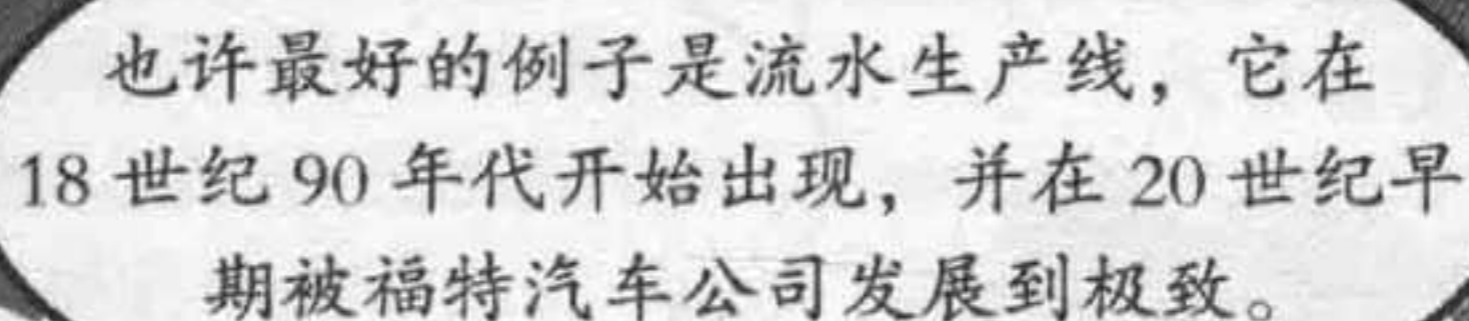 也许最好的例子是流水生产线，它在
18世纪90年代开始出现，并在20世纪早
期被福特汽车公司发展到极致。